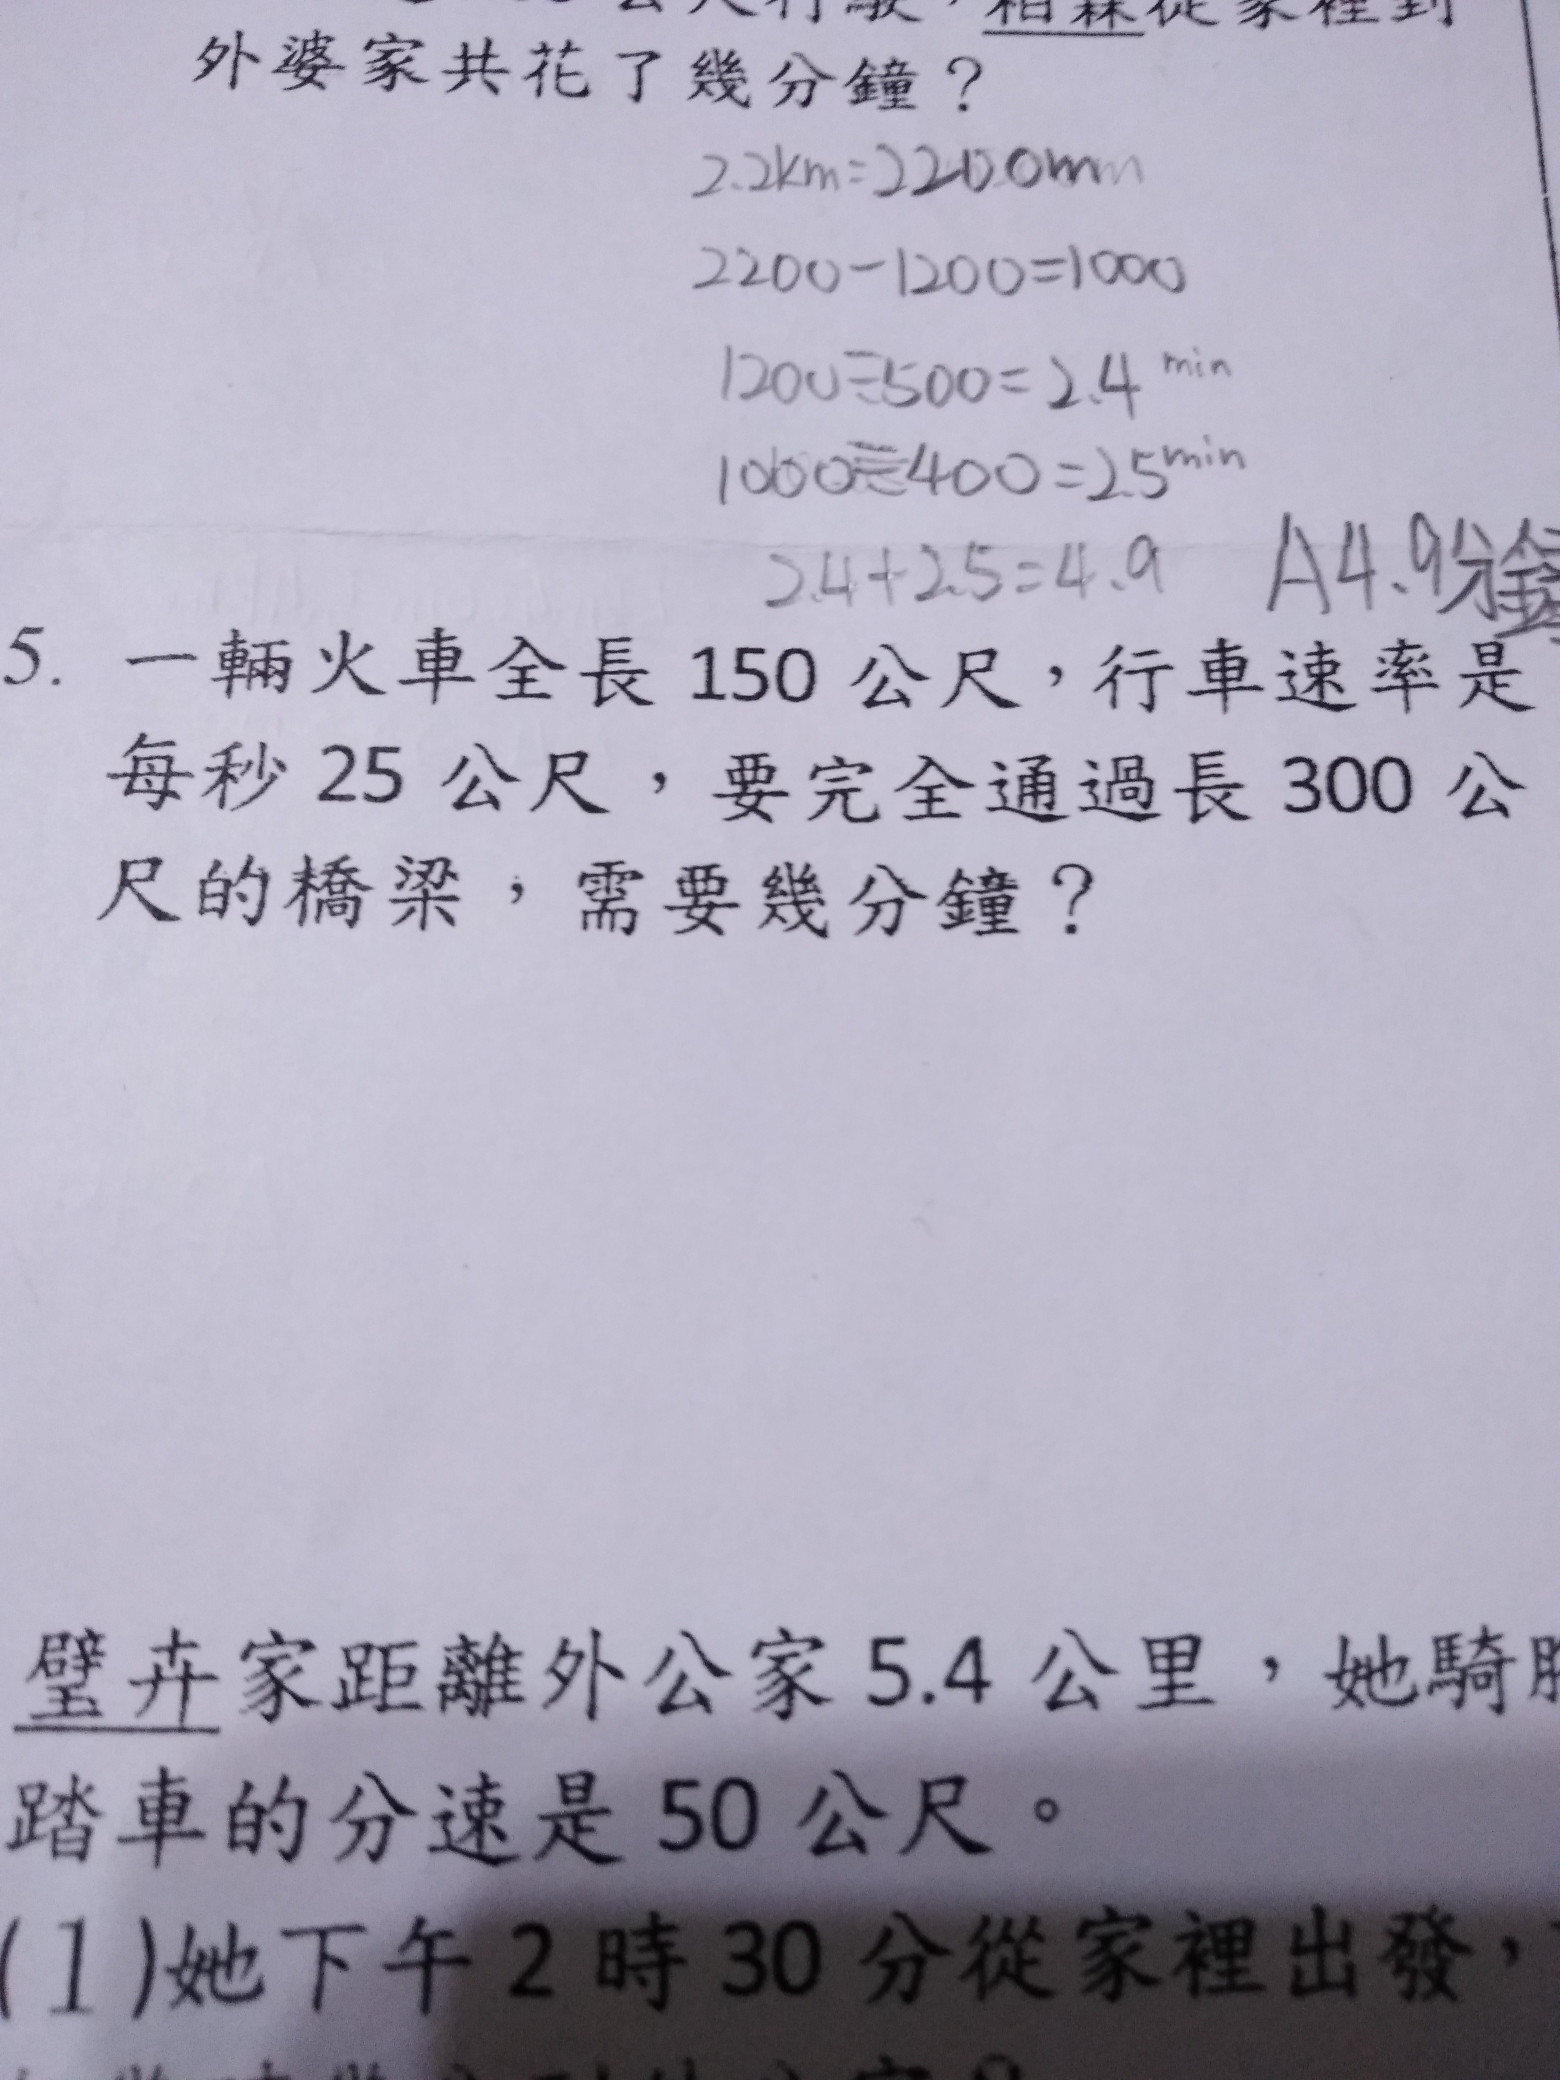 公尺行駛，柏霖從家裡到
外婆家共花了幾分鐘？
2.2km=2200m
2200-1200=1000
1200÷500=2.4 min
1000÷400=2.5 min
2.4+2.5=4.9 A4.9分鐘
5. 一輛火車全長 150 公尺，行車速率是
每秒 25 公尺，要完全通過長 300 公
尺的橋梁，需要幾分鐘？
璧卉家距離外公家 5.4 公里，她騎腳
踏車的分速是 50 公尺。
(1)她下午 2 時 30 分從家裡出發，